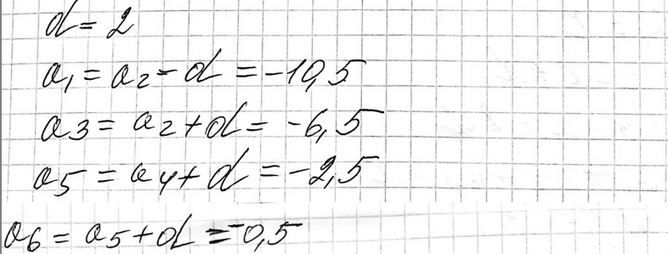 d = 2
a₁ = a₂ - d = -10,5
a₃ = a₂ + d = -6,5
a₅ = a₄ + d = -2,5
a₆ = a₅ + d = -0,5